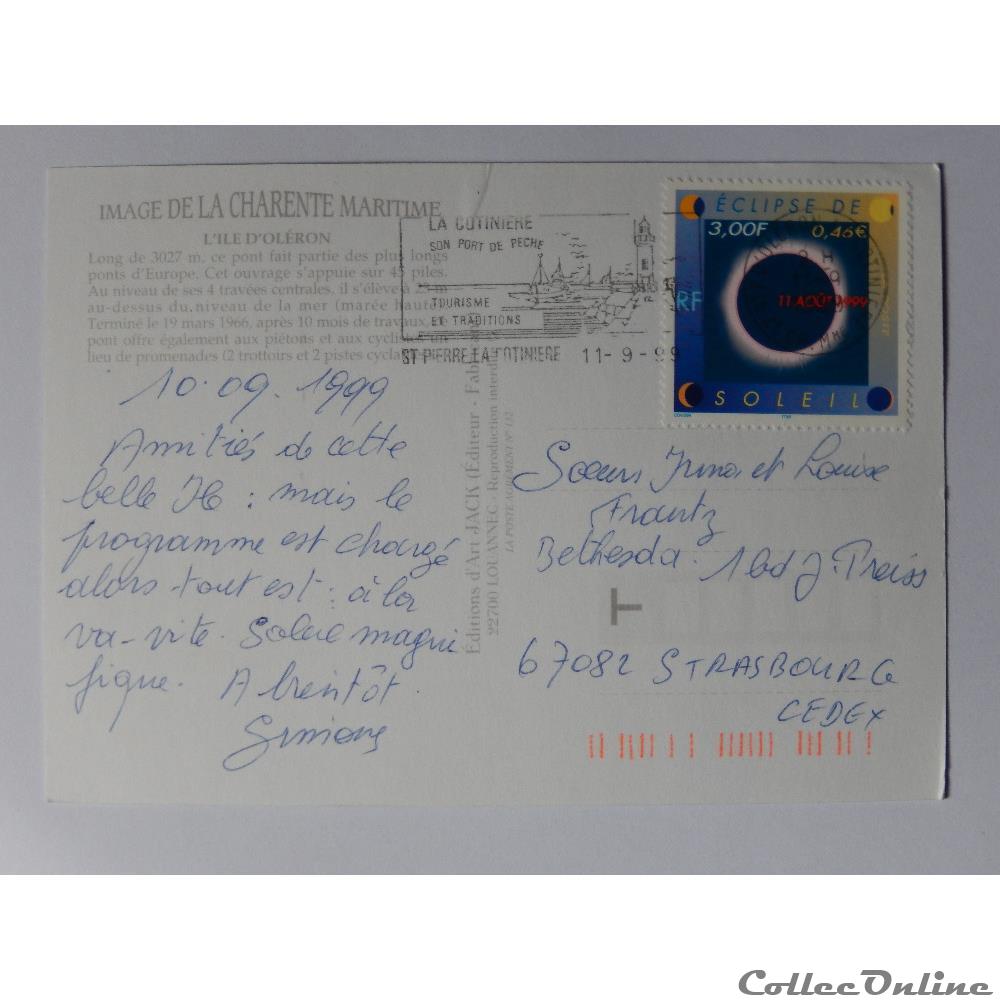 IMAGE DE LA CHARENTE MARITIME
L'ILE D'OLÉRON
Long de 3027 m, ce pont fait partie des plus longs
ponts d'Europe. Cet ouvrage s'appuie sur 45 piles.
Au niveau de ses 4 travées centrales, il s'élève à 23 m
au-dessus du niveau de la mer (marée haute)
Terminé le 19 mars 1966, après 10 mois de travaux,
pont offre également aux piétons et aux
lieu de promenades (2 trottoirs et 2 pistes
LA COTINIERE
SON PORT DE PECHE
TOURISME
ET TRADITIONS
ST PIERRE LA COTINIERE 11-9-99
ÉCLIPSE DE
3,00F 0,46€
RF
11 AOÛT 1999
SOLEIL
10.09.1999
Amitiés de cette
belle Ile : mais le
programme est chargé
alors tout est : à la
va-vite. Soleil magni
fique. A bientôt
Simone
Éditions d'Art JACK (Éditeur -
22700 LOUANNEC - Reproduction
LA POSTE AGRÉMENT N° 132
Soeurs Irma et Louise
Frantz
Bethesda. 1 bd J. Preiss
T
67082 STRASBOURG
CEDEX
CollecOnline